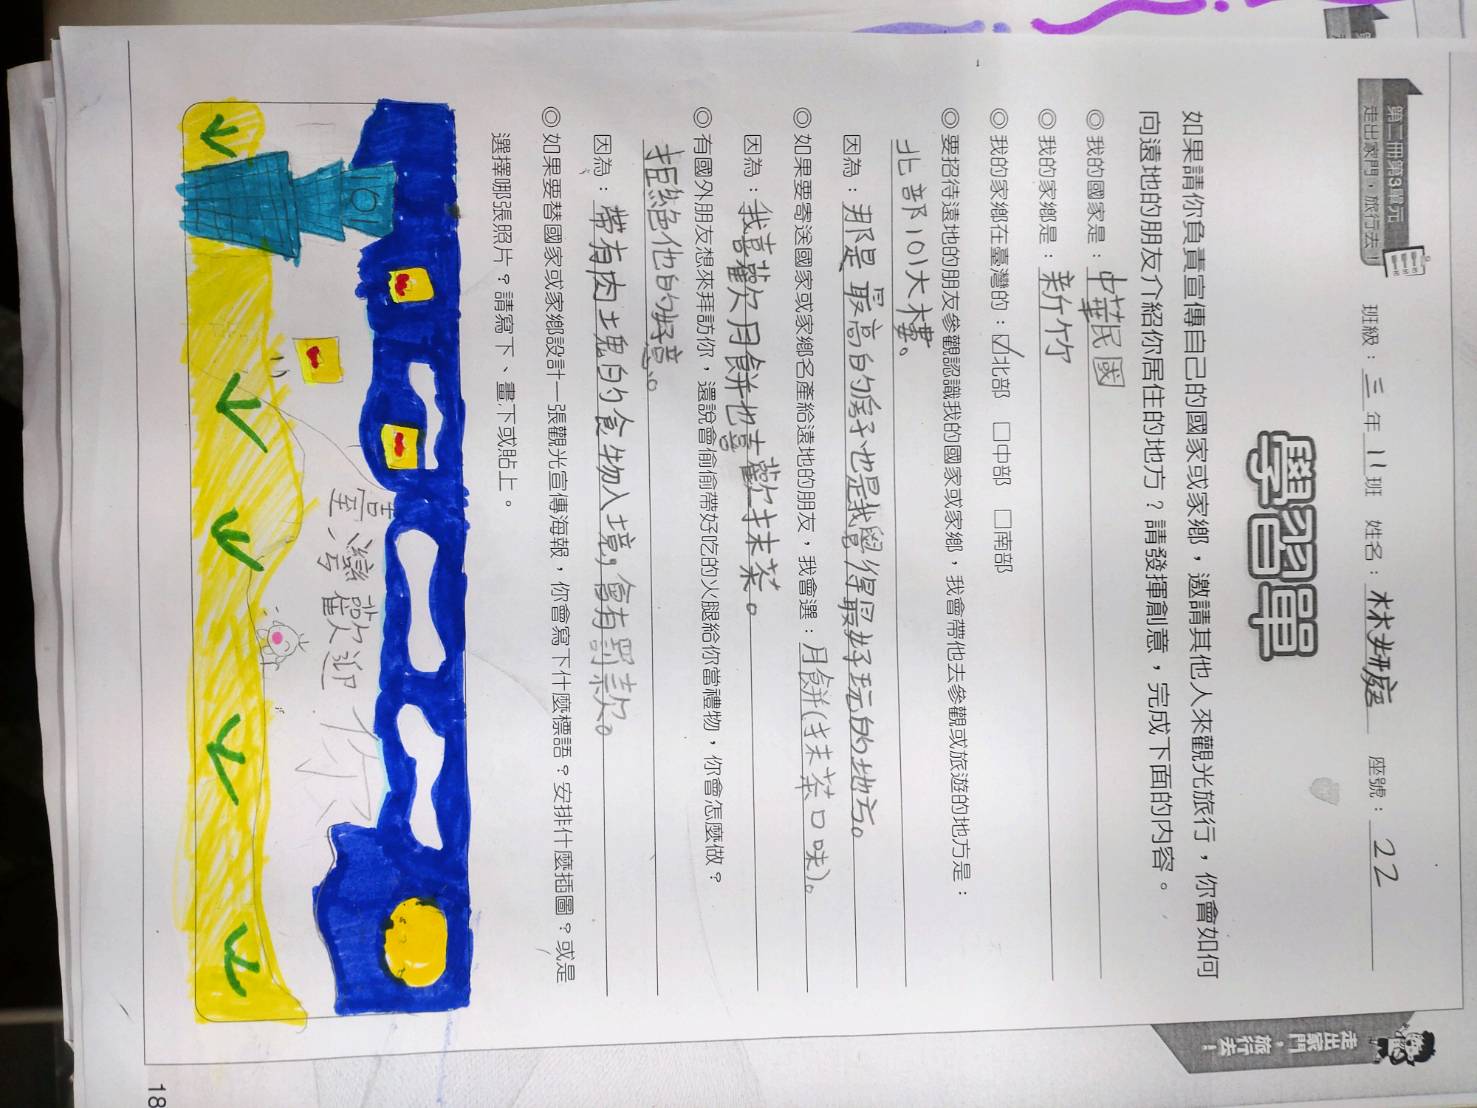 第二冊第3單元
走出家門，旅行去！
班級：三年11班 姓名：林妍庭 座號：22
學習單
如果請你負責宣傳自己的國家或家鄉，邀請其他人來觀光旅行，你會如何
向遠地的朋友介紹你居住的地方？請發揮創意，完成下面的內容。
◎我的國家是：中華民國
◎我的家鄉是：新竹
◎我的家鄉在臺灣的：☑北部 □中部 □南部
◎要招待遠地的朋友參觀認識我的國家或家鄉，我會帶他去參觀或旅遊的地方是：
北部101大樓。
因為：那是最高的房子也是我覺得最好玩的地方。
◎如果要寄送國家或家鄉名產給遠地的朋友，我會選：月餅(抹茶口味)。
因為：我喜歡月餅也喜歡抹茶。
◎有國外朋友想來拜訪你，還說會偷偷帶好吃的火腿給你當禮物，你會怎麼做？
拒絕他的好意。
因為：帶有肉土塊的食物入境，會有罰款。
◎如果要替國家或家鄉設計一張觀光宣傳海報，你會寫下什麼標語？安排什麼插圖？或是
選擇哪張照片？請寫下、畫下或貼上。
101
臺灣歡迎你
走出家門，旅行去！
18